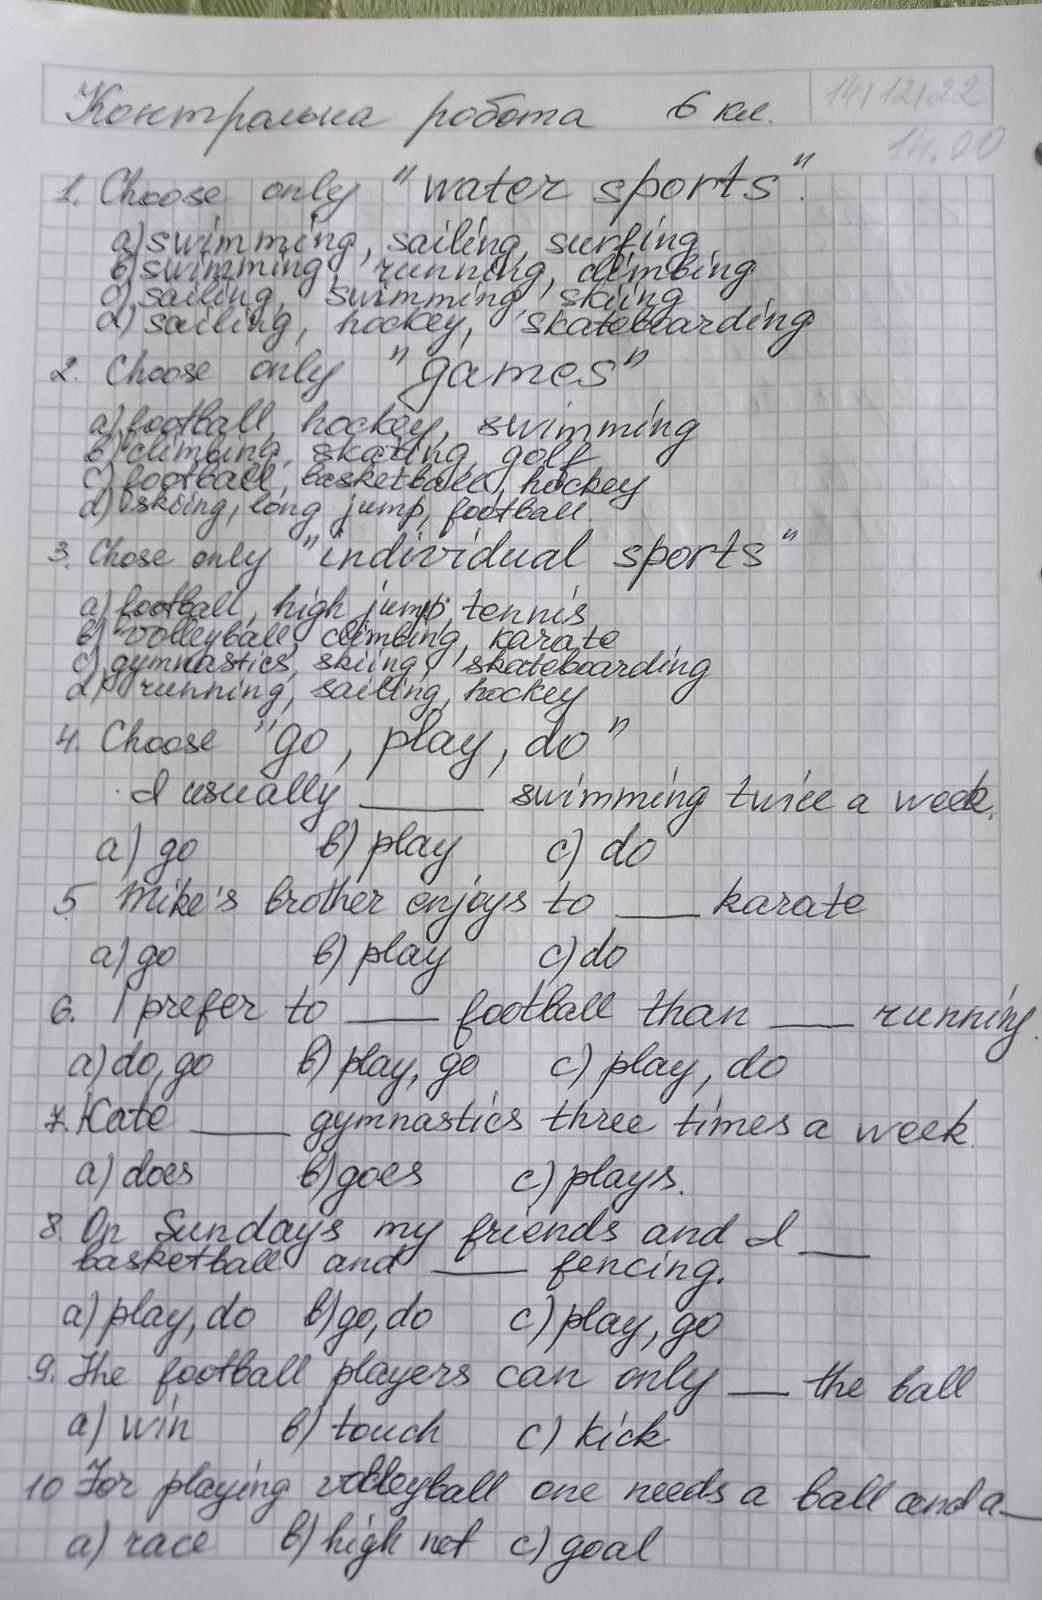 Контрольна робота 6 кл.
14/12/22
14.00
1. Choose only "water sports".
a) swimming, sailing, surfing
b) swimming, running, climbing
c) sailing, swimming, skiing
d) sailing, hockey, skateboarding
2. Choose only "games"
a) football, hockey, swimming
b) climbing, skating, golf
c) football, basketball, hockey
d) skiing, long jump, football
3. Chose only "individual sports"
a) football, high jump, tennis
b) volleyball, climbing, karate
c) gymnastics, skiing, skateboarding
d) running, sailing, hockey
4. Choose "go, play, do"
I usually ____ swimming twice a week.
a) go b) play c) do
5 Mike's brother enjoys to ___ karate
a) go b) play c) do
6. I prefer to ___ football than ___ running.
a) do, go b) play, go c) play, do
7. Kate ____ gymnastics three times a week.
a) does b) goes c) plays.
8. On Sundays my friends and I ___
basketball and ____ fencing.
a) play, do b) go, do c) play, go
9. The football players can only ___ the ball
a) win b) touch c) kick
10 For playing volleyball one needs a ball and a __
a) race b) high net c) goal